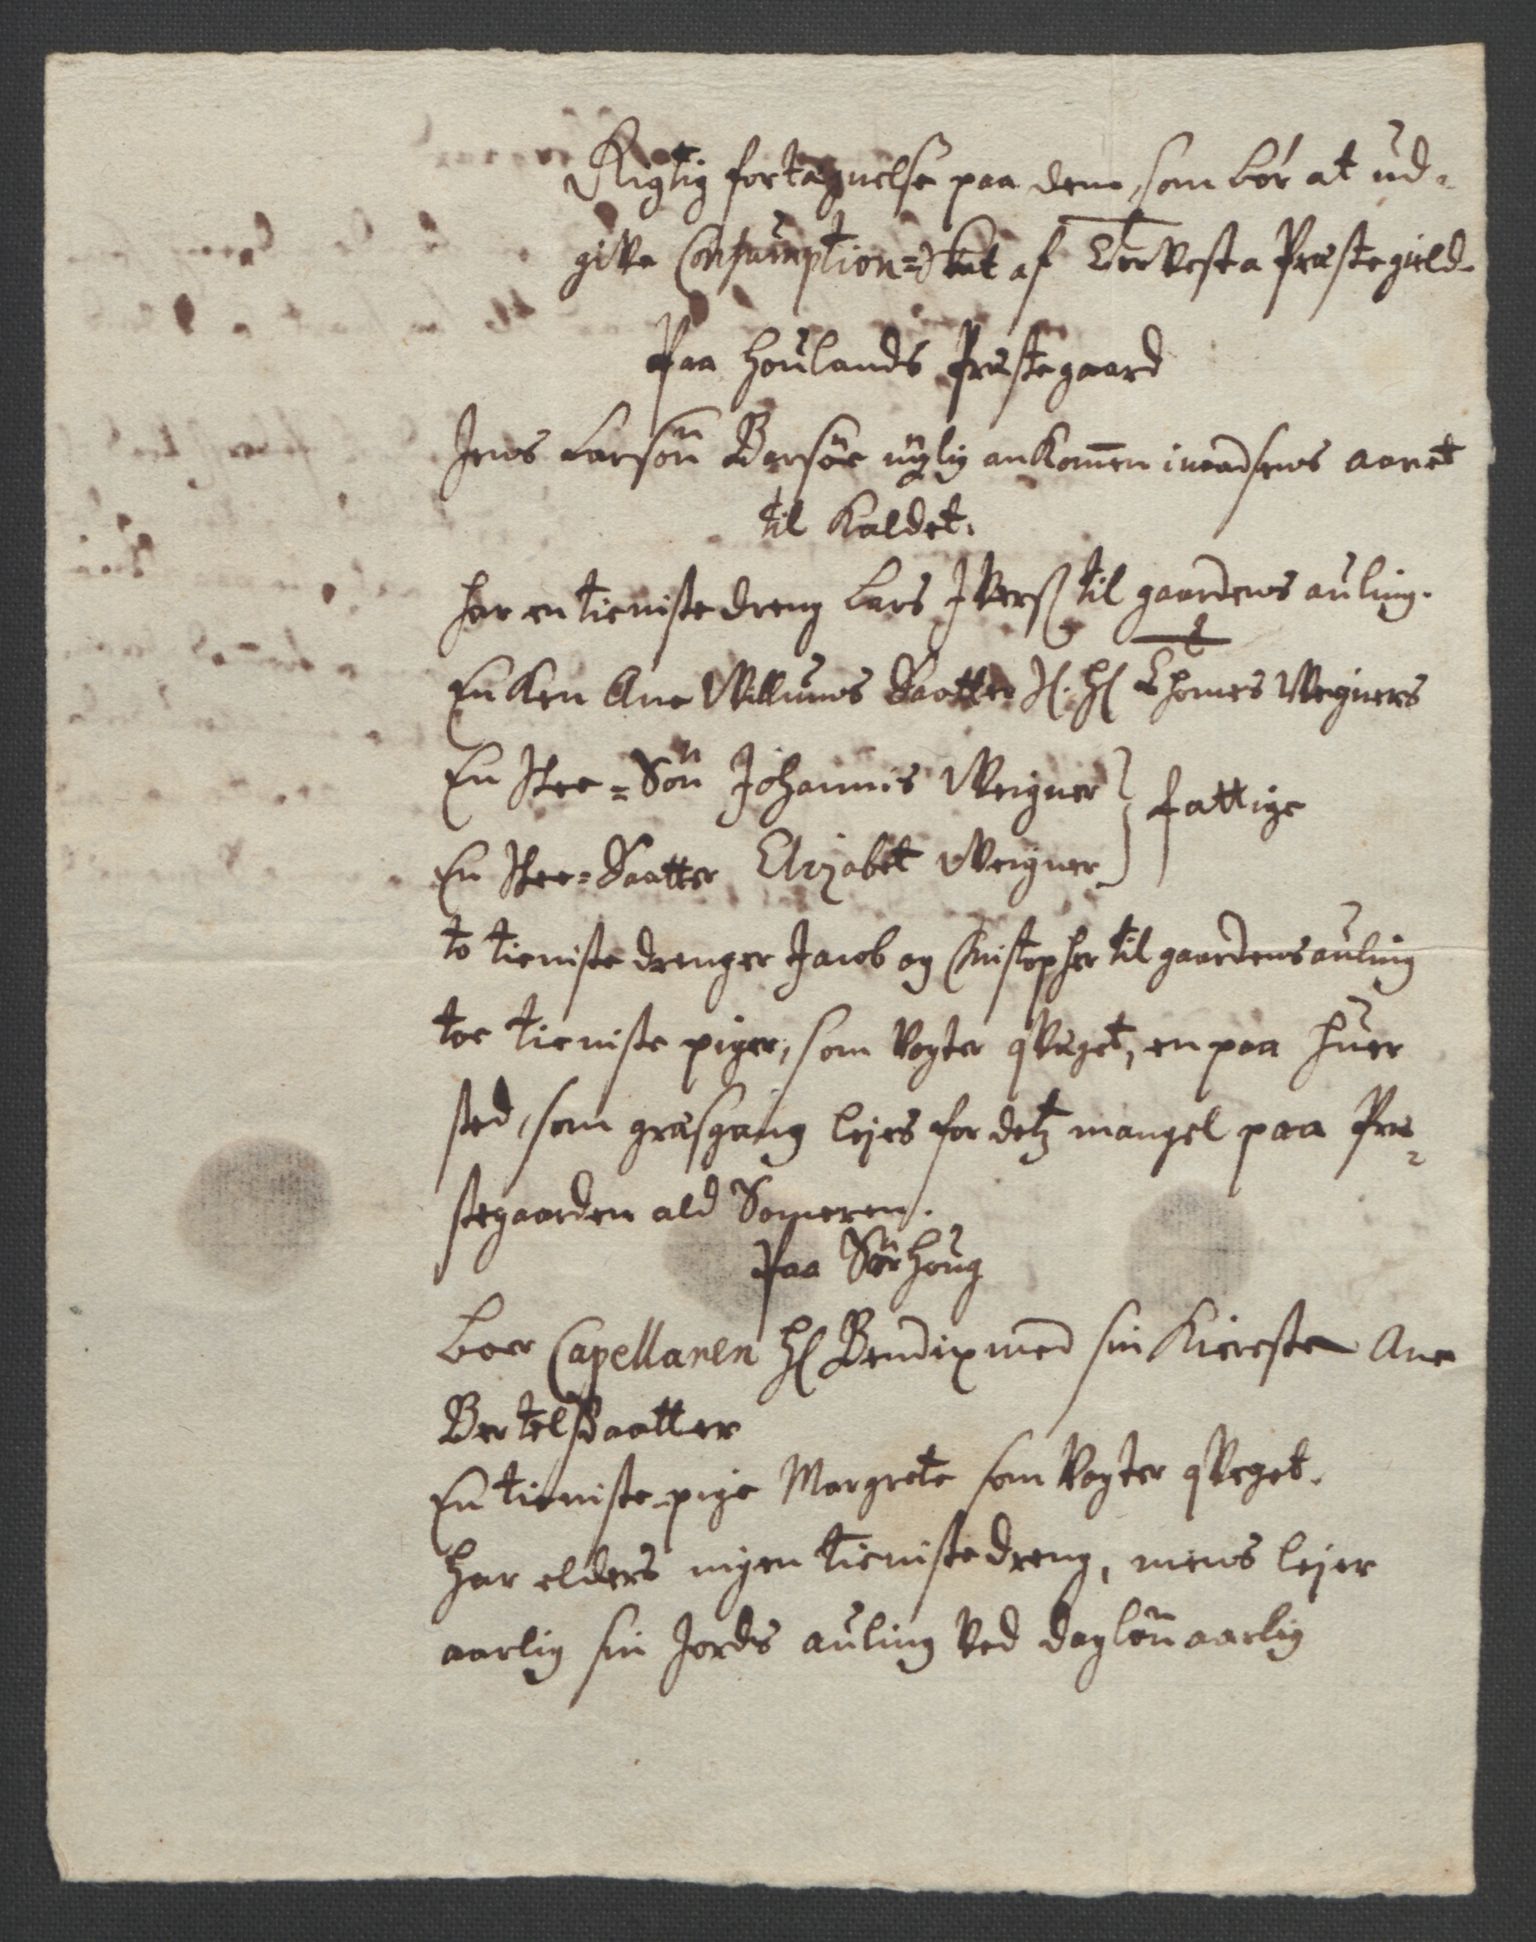 Rigtig fortægnelse paa dem, som bør at ud-
give Consumption=Skat af Torvesta Præstegield.
Paa Houlands Præstegaard
Jens Larsøn Borsøe nylig ankommen inden aaret
til Kaldet.
har en tieniste dreng Lars Iverß til gaardens auling.
Enken Ane Willums Daatter S. Hr Thomes Wegners
En Stee=Søn Johannis Weigner } fattige
En Stee=Daatter Elizabet Weigner
to tieniste drenger Jacob og Christopher til gaardens auling
toe tieniste piger, som vogter qveget, en paa huer
sted, som græsgang lejes for detz mangel paa Præ-
stegaarden ald Sommeren.
Paa Sørhoug
Boer Capellanen Hr Bendix med sin Kiereste Ane
Bertelsdaatter
En tieniste pige Margrete som vogter qveget.
Har elders ingen tieniste dreng, mens lejer
aarlig sin Jords auling ved dagløn aarlig